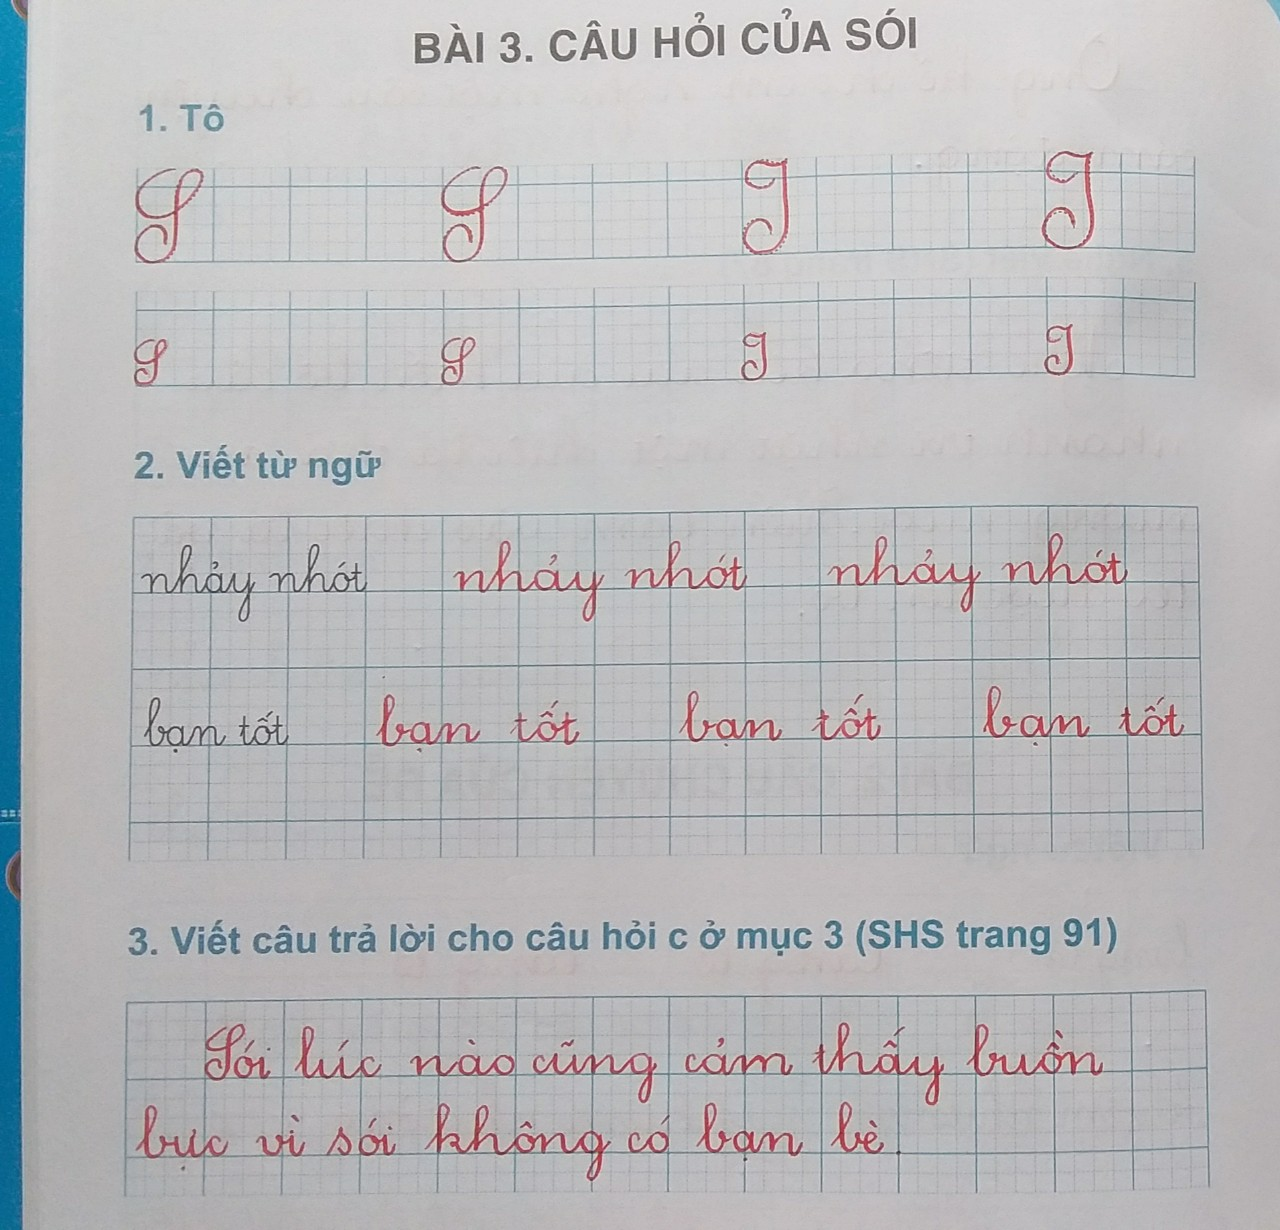 BÀI 3. CÂU HỎI CỦA SÓI
1. Tô
S S S S
S S S S
2. Viết từ ngữ
nhảy nhót nhảy nhót nhảy nhót
bạn tốt bạn tốt bạn tốt bạn tốt
3. Viết câu trả lời cho câu hỏi c ở mục 3 (SHS trang 91)
Sói lúc nào cũng cảm thấy buồn
bực vì sói không có bạn bè.